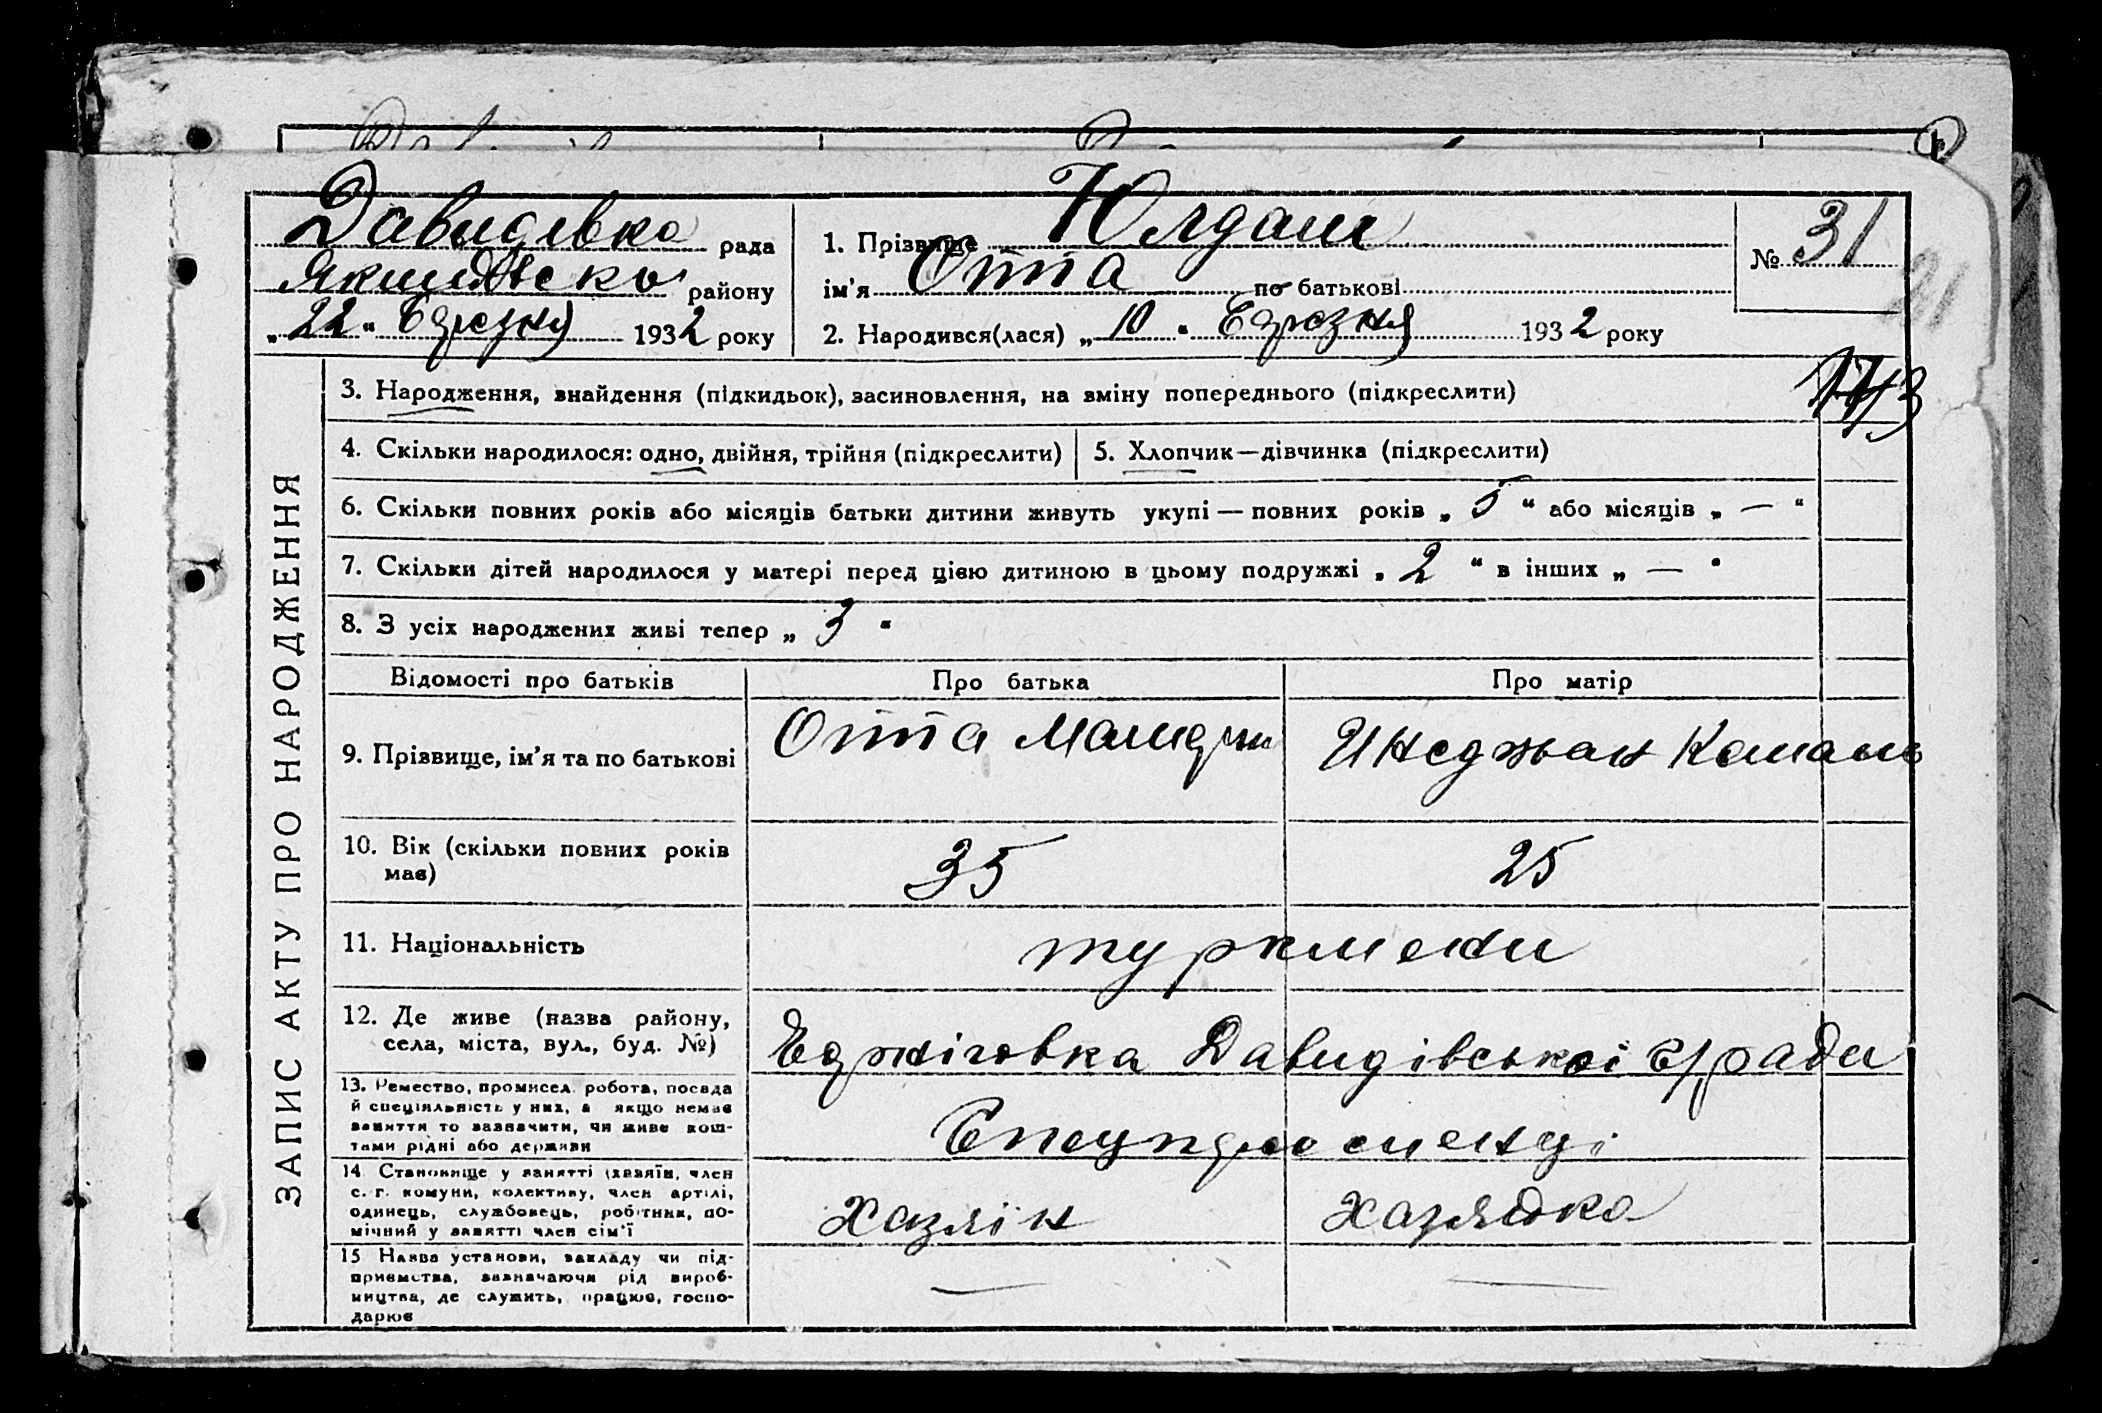 Давидівка рада
району
„ 22 “ березня 1932 року
1. Прізвище Юлдаш
ім'я Отта по батькові
2. Народився(лася) „ 10 “ березня 1932 року
№ 31
ЗАПИС АКТУ ПРО НАРОДЖЕННЯ
3. Народження, знайдення (підкидьок), засиновлення, на зміну попереднього (підкреслити)
4. Скільки народилося: одно, двійня, трійня (підкреслити)
5. Хлопчик—дівчинка (підкреслити)
6. Скільки повних років або місяців батьки дитини живуть укупі — повних років „ 5 “ або місяців „ — “
7. Скільки дітей народилося у матері перед цією дитиною в цьому подружжі „ 2 “ в інших „ — “
8. З усіх народжених живі тепер „ 3 “
Відомості про батьків
Про батька
Про матір
9. Прізвище, ім'я та по батькові
Отта
Инеджан
10. Вік (скільки повних років
має)
35
25
11. Національність
туркмени
12. Де живе (назва району,
села, міста, вул., буд. №)
Давидівської с/ради
13. Ремество, промисел, робота, посада
й спеціяльність у них, а якщо немає
заняття то зазначити, чи живе кош-
тами рідні або держави
14. Становище у занятті (хазяїн, член
с.-г. комуни, колективу, член артілі,
одинець, службовець, робітник, по-
мічний у занятті член сім'ї
Хазяін
Хазяйка
15 Назва установи, закладу чи під-
приємства, зазначаючи рід вироб-
ництва, де служить, працює, госпо-
дарює
— —